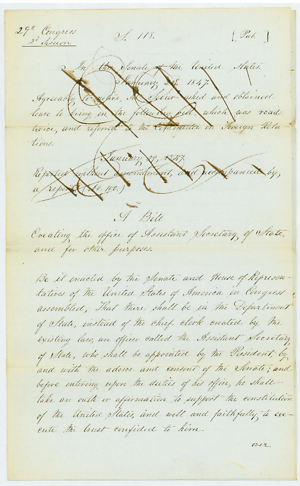 29th Congress
2d Session
S. 118.
[Pub.
In the Senate of the United States.
January 1847.
Agreeably to notice, Mr. asked and obtained
leave to bring in the following bill, which was read
twice, and referred to the Committee on Foreign Rela-
tions.
January 1847.
Reported without amendment, and accompanied by,
a report No.
A Bill
Creating the office of Assistant Secretary, of State,
and for other purposes.
Be it enacted by the Senate and House of Represen-
tatives of the United States of America in Congress
assembled, That there shall be in the Department
of State, instead of the chief clerk created by the
existing law, an officer called the Assistant Secretary
of State, who shall be appointed by the President, by,
and with the advice and consent of the Senate; and
before entering upon the duties of his office, he shall
take an oath or affirmation to support the constitution
of the United States, and well and faithfully, to ex-
ecute the trust confided to him.